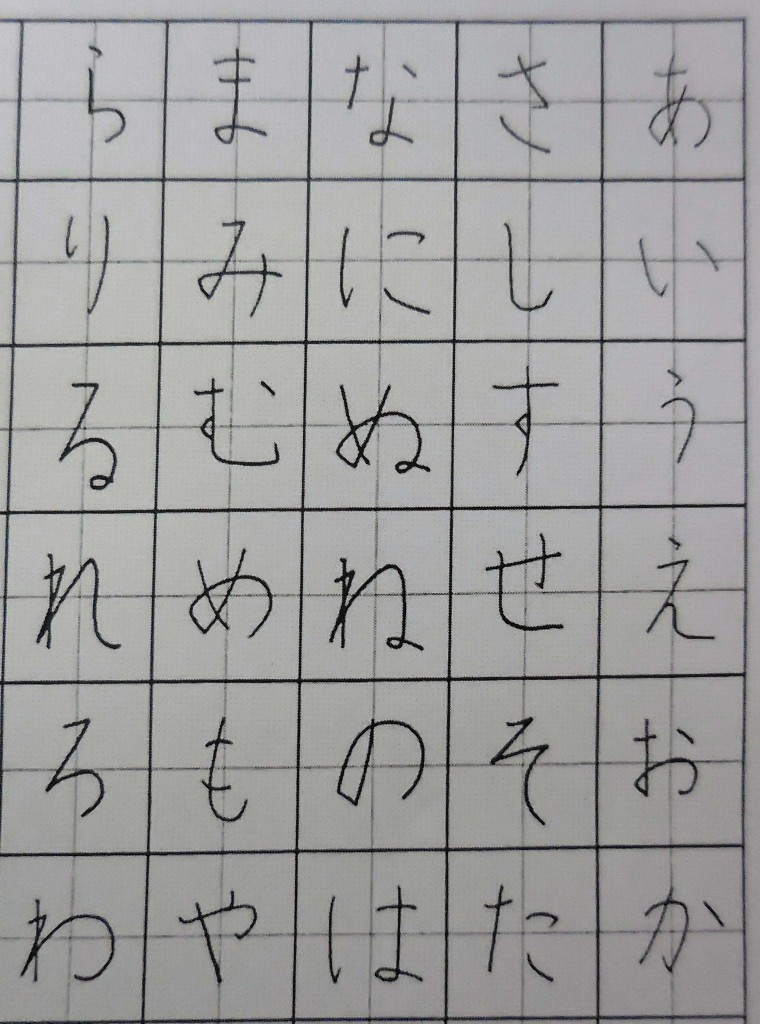 あいうえおか
さしすせそた
なにぬねのは
まみむめもや
らりるれろわ